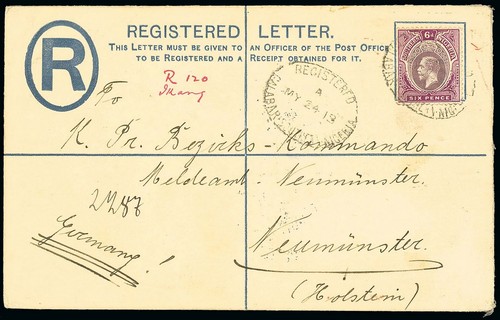 REGISTERED LETTER.
THIS LETTER MUST BE GIVEN TO AN OFFICER OF THE POST OFFICE
TO BE REGISTERED AND A RECEIPT OBTAINED FOR IT.
R
R 120
To
REGISTERED
A
MY 24
CALABAR
NIGERIA
6d
SOUTHERN NIGERIA
SIX PENCE
K. Pr. Bezirks-Kommando
Meldeamt-Neumünster.
2287
Neumünster.
Germany!
(Holstein)